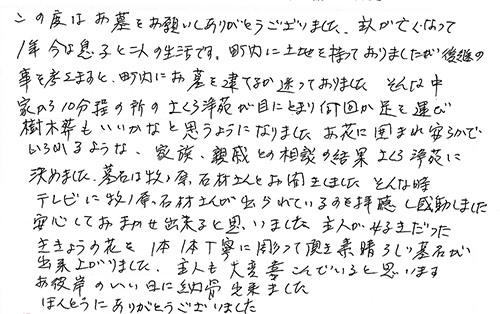 この度はお墓をお願いしありがとうございました。主人が亡くなって
1年今な息子と二人の生活です。町内に土地を持っておりましたが後継の
事を考えますと、町内にお墓を建てるか迷っておりました そんな中
家から10分程の所のさくら浄苑が目にとまり何回か足を運び
樹木葬もいいかなと思うようになりました お花に囲まれ安らかで
いられるような、家族、親戚との相談の結果さくら浄苑に
決めました。墓石は牧ノ原石材さんとお聞きしました そんな時
テレビに牧ノ原石材さんが出られているのを拝聴し感動しました
安心しておまかせ出来ると思いました 主人が好きだった
ききょうの花を1本1本丁寧に彫って頂き素晴らしい墓石が
出来上がりました、主人も大変喜こんでいると思います
お彼岸のいい日に納骨出来ました
ほんとうにありがとうございました